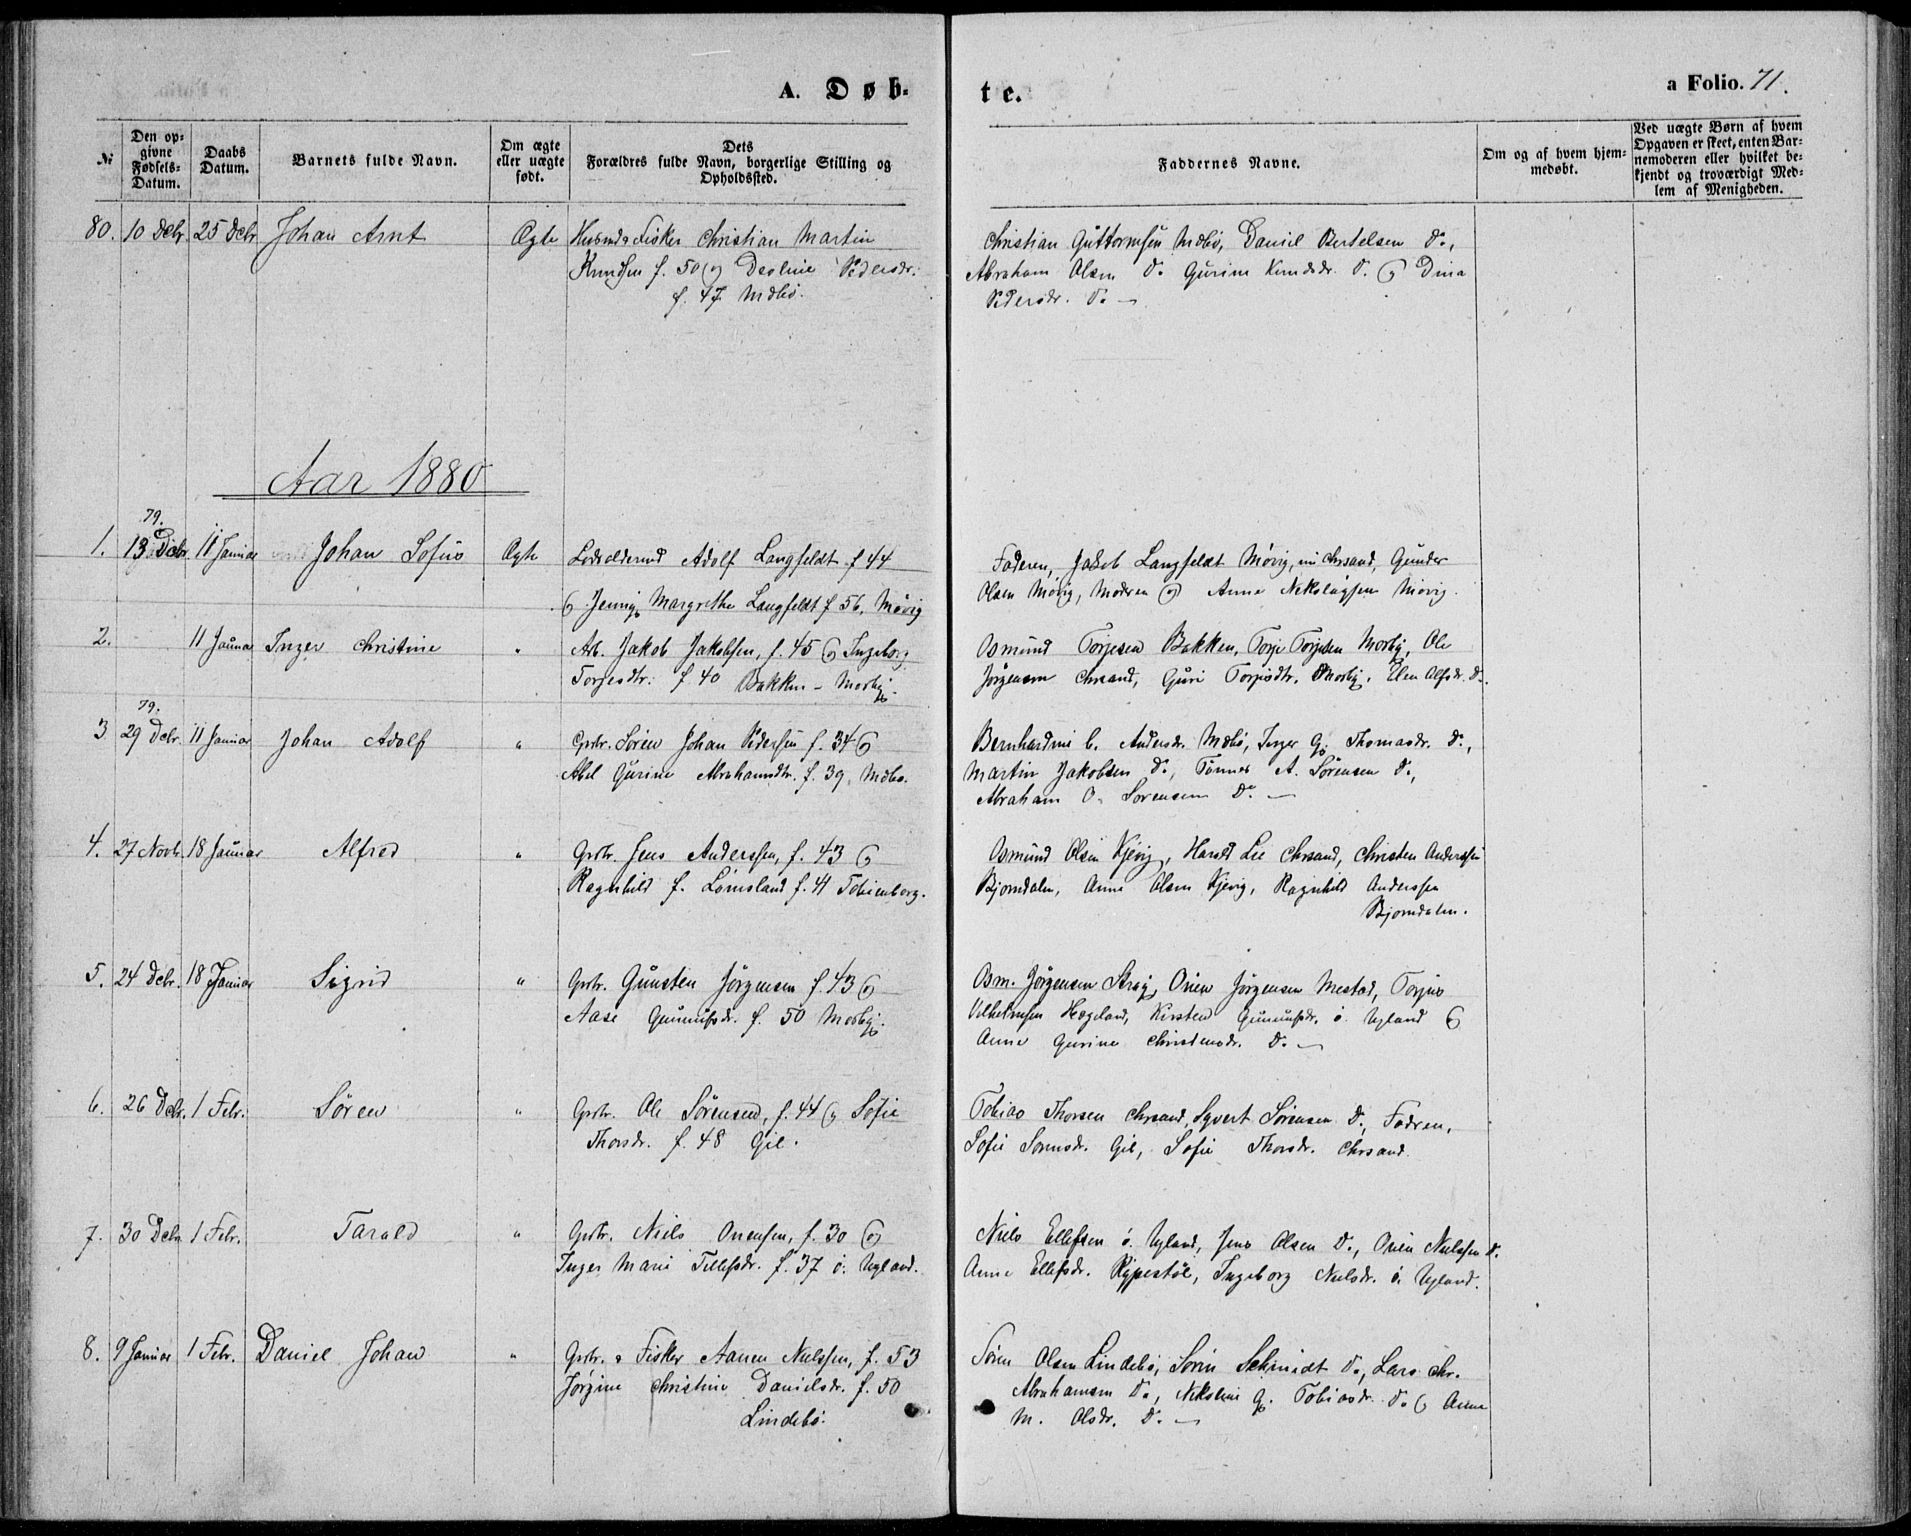 A. Døb-
te.
a Folio. 71.
№
Den op-
givne
Fødsels-
Datum.
Daabs
Datum.
Barnets fulde Navn.
Om ægte
eller uægte
født.
Dets
Forældres fulde Navn, borgerlige Stilling og
Opholdssted.
Faddernes Navne.
Om og af hvem hjem-
medøbt.
Ved uægte Børn af hvem
Opgaven er skeet, enten Bar-
nemoderen eller hvilket be-
kjendt og troværdigt Med-
lem af Menigheden.
80. 10 Decbr. 25 Decbr Johan Arnt Ægte Husmd & Fisker Christian Martin
Knudsen f. 50 og Deoline Pedersdr.
f. 47 Mdbø.
Christian Guttormsen Mdbø, Daniel Bertelsen Do.,
Abraham Olsen Do. Gurine Knudsdr. Do. og Dina
Pedersdr. Do. —
Aar 1880
79.
1. 13 Decbr. 11 Januar Johan Sofus Ægte Lodsoldermd Adolf Langfeldt f 44
og Jennij Margrethe Langfeldt f 56. Møvig
Faderen, Jakob Langfeldt Møvig, Chrsand, Gunder
Olsen Møvig, Moderen og Anne Nikolaysen Møvig.
2. 11 Januar Inger Christine " Arb. Jakob Jakobsen, f. 45 og Ingeborg
Torjesdtr: f 40 Bakken - Mosbÿ.
Osmund Torjesen Bakken, Torje Torjesen Mosbÿ, Ole
Jørgensen Chrsand, Guri Torjesdtr. Mosbÿ, Elen Alfsdr. Do.
79.
3 29 Decbr. 11 Januar Johan Adolf " Grbr. Søren Johan Pedersen f. 34 og
Abel Gurine Abrahamsdtr. f. 39, Mdbø.
Bernhardine C. Andersdr. Mdbø, Inger G. Thomasdr. Do.,
Martin Jakobsen Do., Tønnes A. Sørensen Do.,
Abraham O. Sørensen Do. —
4. 27 Novbr. 18 Januar Alfred " Grbr. Jens Anderssen, f. 43 og
Ragnhild f. Lømsland f. 41 Tobienborg.
Osmund Olsen Kjevig, Harold Lie Chrsand, Christen Anderssen
Bjorndalen, Anne Olsen Kjevig, Ragnhild Anderssen
Bjorndalen.
5. 24 Decbr. 18 Januar Sigrid " Grbr. Gunsten Jørgensen f. 43 og
Aase Gunnufsdr. f. 50 Mosbÿ.
Osm. Jørgensen Straÿ, Orien Jørgensen Mestad, Torjus
Vilhelmsen Hægeland, Kirsten Gunnufsdr. ö. Uyland og
Anne Gurine Christensdr. Do. —
6. 26 Decbr. 1 Febr. Søren " Grbr. Ole Sørensen, f. 44 og Sofie
Thorsdr. f. 48 Gil.
Tobias Thorsen Chrsand, Syvert Sørensen Do., Fadren,
Sofie Sørensdr. Gil, Sofie Thorsdr. Chrsand.
7. 30 Decbr. 1 Febr. Tarald " Grbr. Niels Onensen, f. 30 og
Inger Marie Tellefsdr. f. 37 ö. Uyland.
Niels Ellefsen ö. Uyland, Jens Olsen Do., Orien Nielssen Do.
Anne Ellefsdr. Rypestøl, Ingeborg Nielsdr. ö. Uyland.
8. 9 Januar 1 Febr. Daniel Johan " Grbr. & Fisker Aanen Nielssen, f. 53
Jørgine Christine Danielsdr. f. 50
Lindebø.
Søren Olsen Lindebø, Sørin Schmidt Do., Lars Chr.
Abrahamsen Do., Nikoline G. Tobiasdr. Do. og Anne
M. Olsdr. Do. —